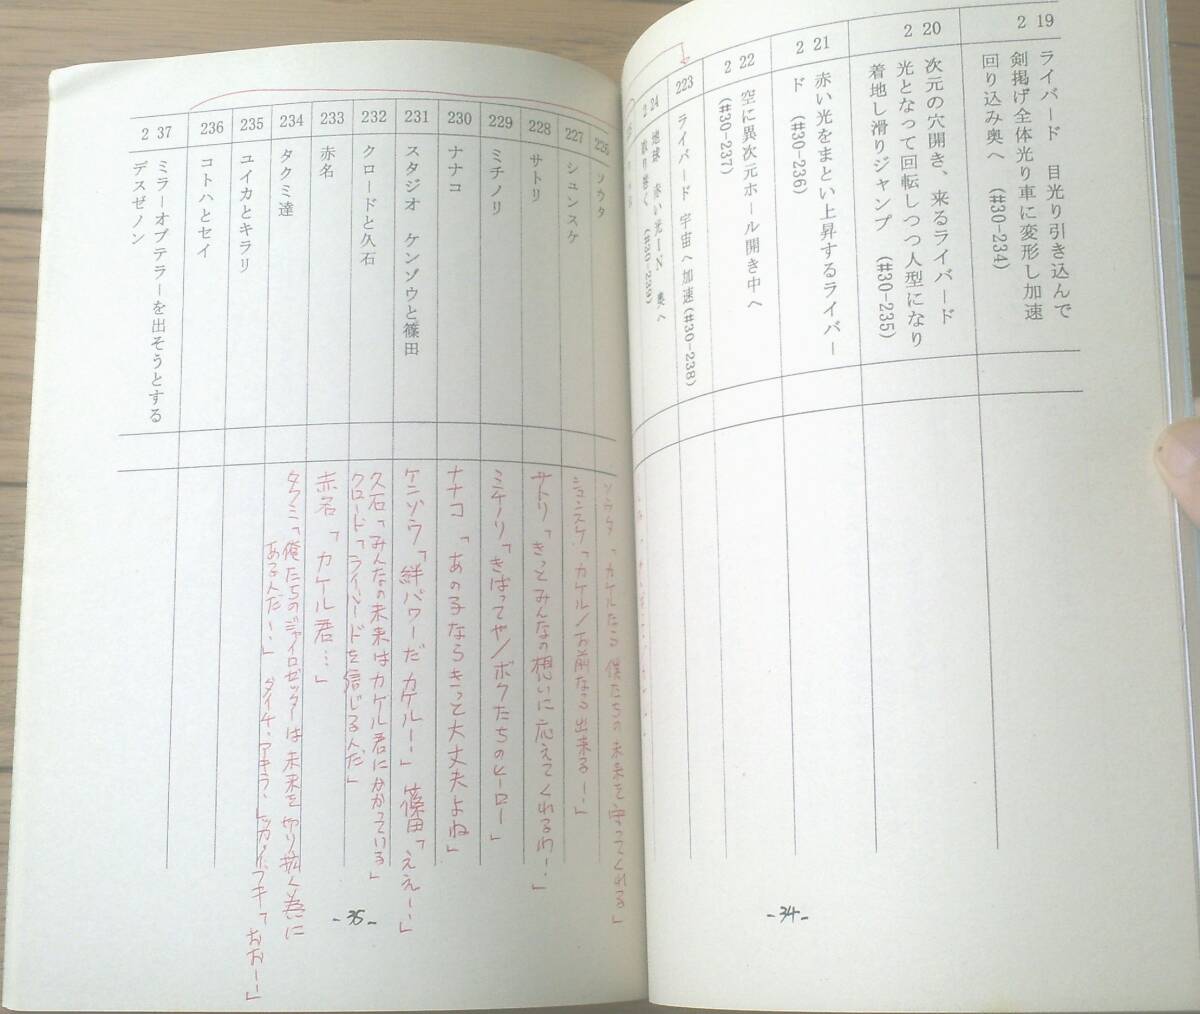 2 19
ライバード 目光り引き込んで
剣掲げ全体光り車に変形し加速
回り込み奥へ (#30-234)
2 20
次元の穴開き、来るライバード
光となって回転しつつ人型になり
着地し滑りジャンプ (#30-235)
2 21
赤い光をまとい上昇するライバー
ド (#30-236)
2 22
空に異次元ホール開き中へ
(#30-237)
223
ライバード 宇宙へ加速(#30-238)
2 24
地球 赤い光ーN 奥へ
取り巻く (#30-239)
-34-
226
ソウタ
ソウタ「カケルなら 僕たちの未来を守ってくれる」
227
シュンスケ
シュンスケ「カケル!お前なら出来るー!」
228
サトリ
サトリ「きっとみんなの想いに応えてくれるわー!」
229
ミチノリ
ミチノリ「きばってや!ボクたちのヒーロー」
230
ナナコ
ナナコ「あの子ならきっと大丈夫よね」
231
スタジオ ケンゾウと篠田
ケンゾウ「絆パワーだ カケルー!」 篠田「ええー!」
232
クロードと久石
久石「みんなの未来はカケル君にかかっている」
クロード「ライバードを信じるんだ」
233
赤名
赤名「カケル君…」
234
タクミ達
タクミ「俺たちのジャイロゼッターは未来を切り拓く為に
あるんだー!」 ダイチ・アキラ・
「おおー!」
235
ユイカとキラリ
236
コトハとセイ
2 37
ミラーオブテラーを出そうとする
デスゼノン
-35-